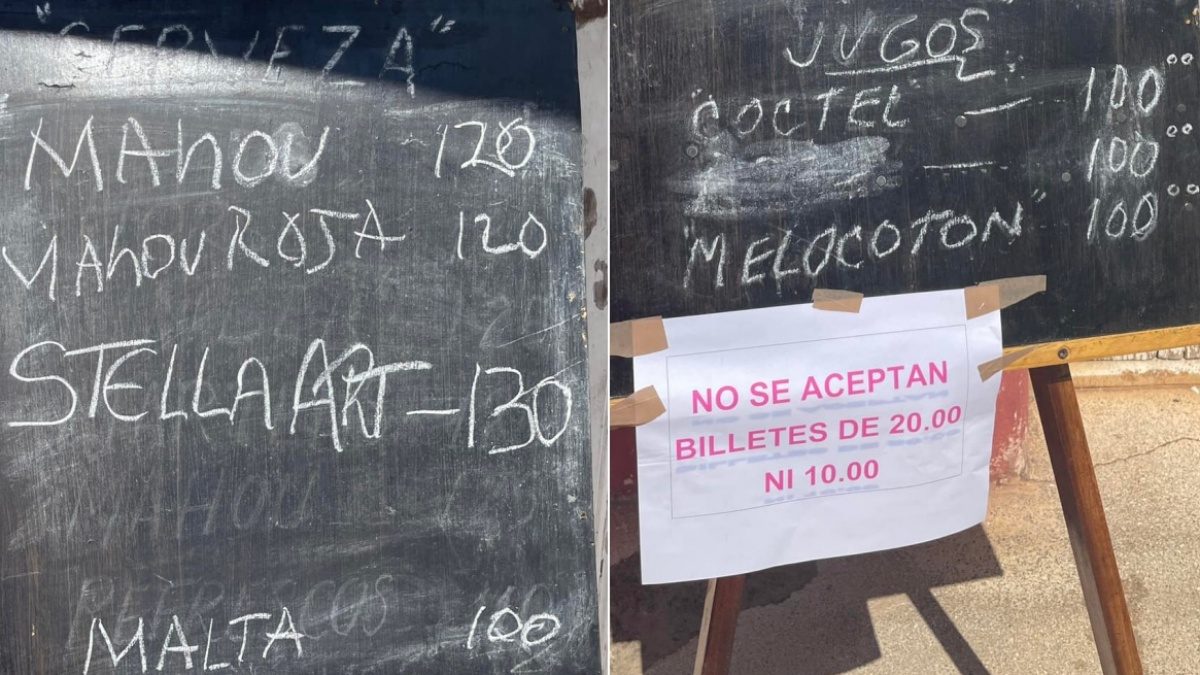 "CERVEZA"
MAHOU 120
MAHOU ROJA 120
STELLA ART - 130
MAHOU
REFRESCOS
MALTA 100
JUGOS
"COCTEL - 100 00
- 100 00
"MELOCOTON" 100 00
NO SE ACEPTAN
BILLETES DE 20.00
NI 10.00